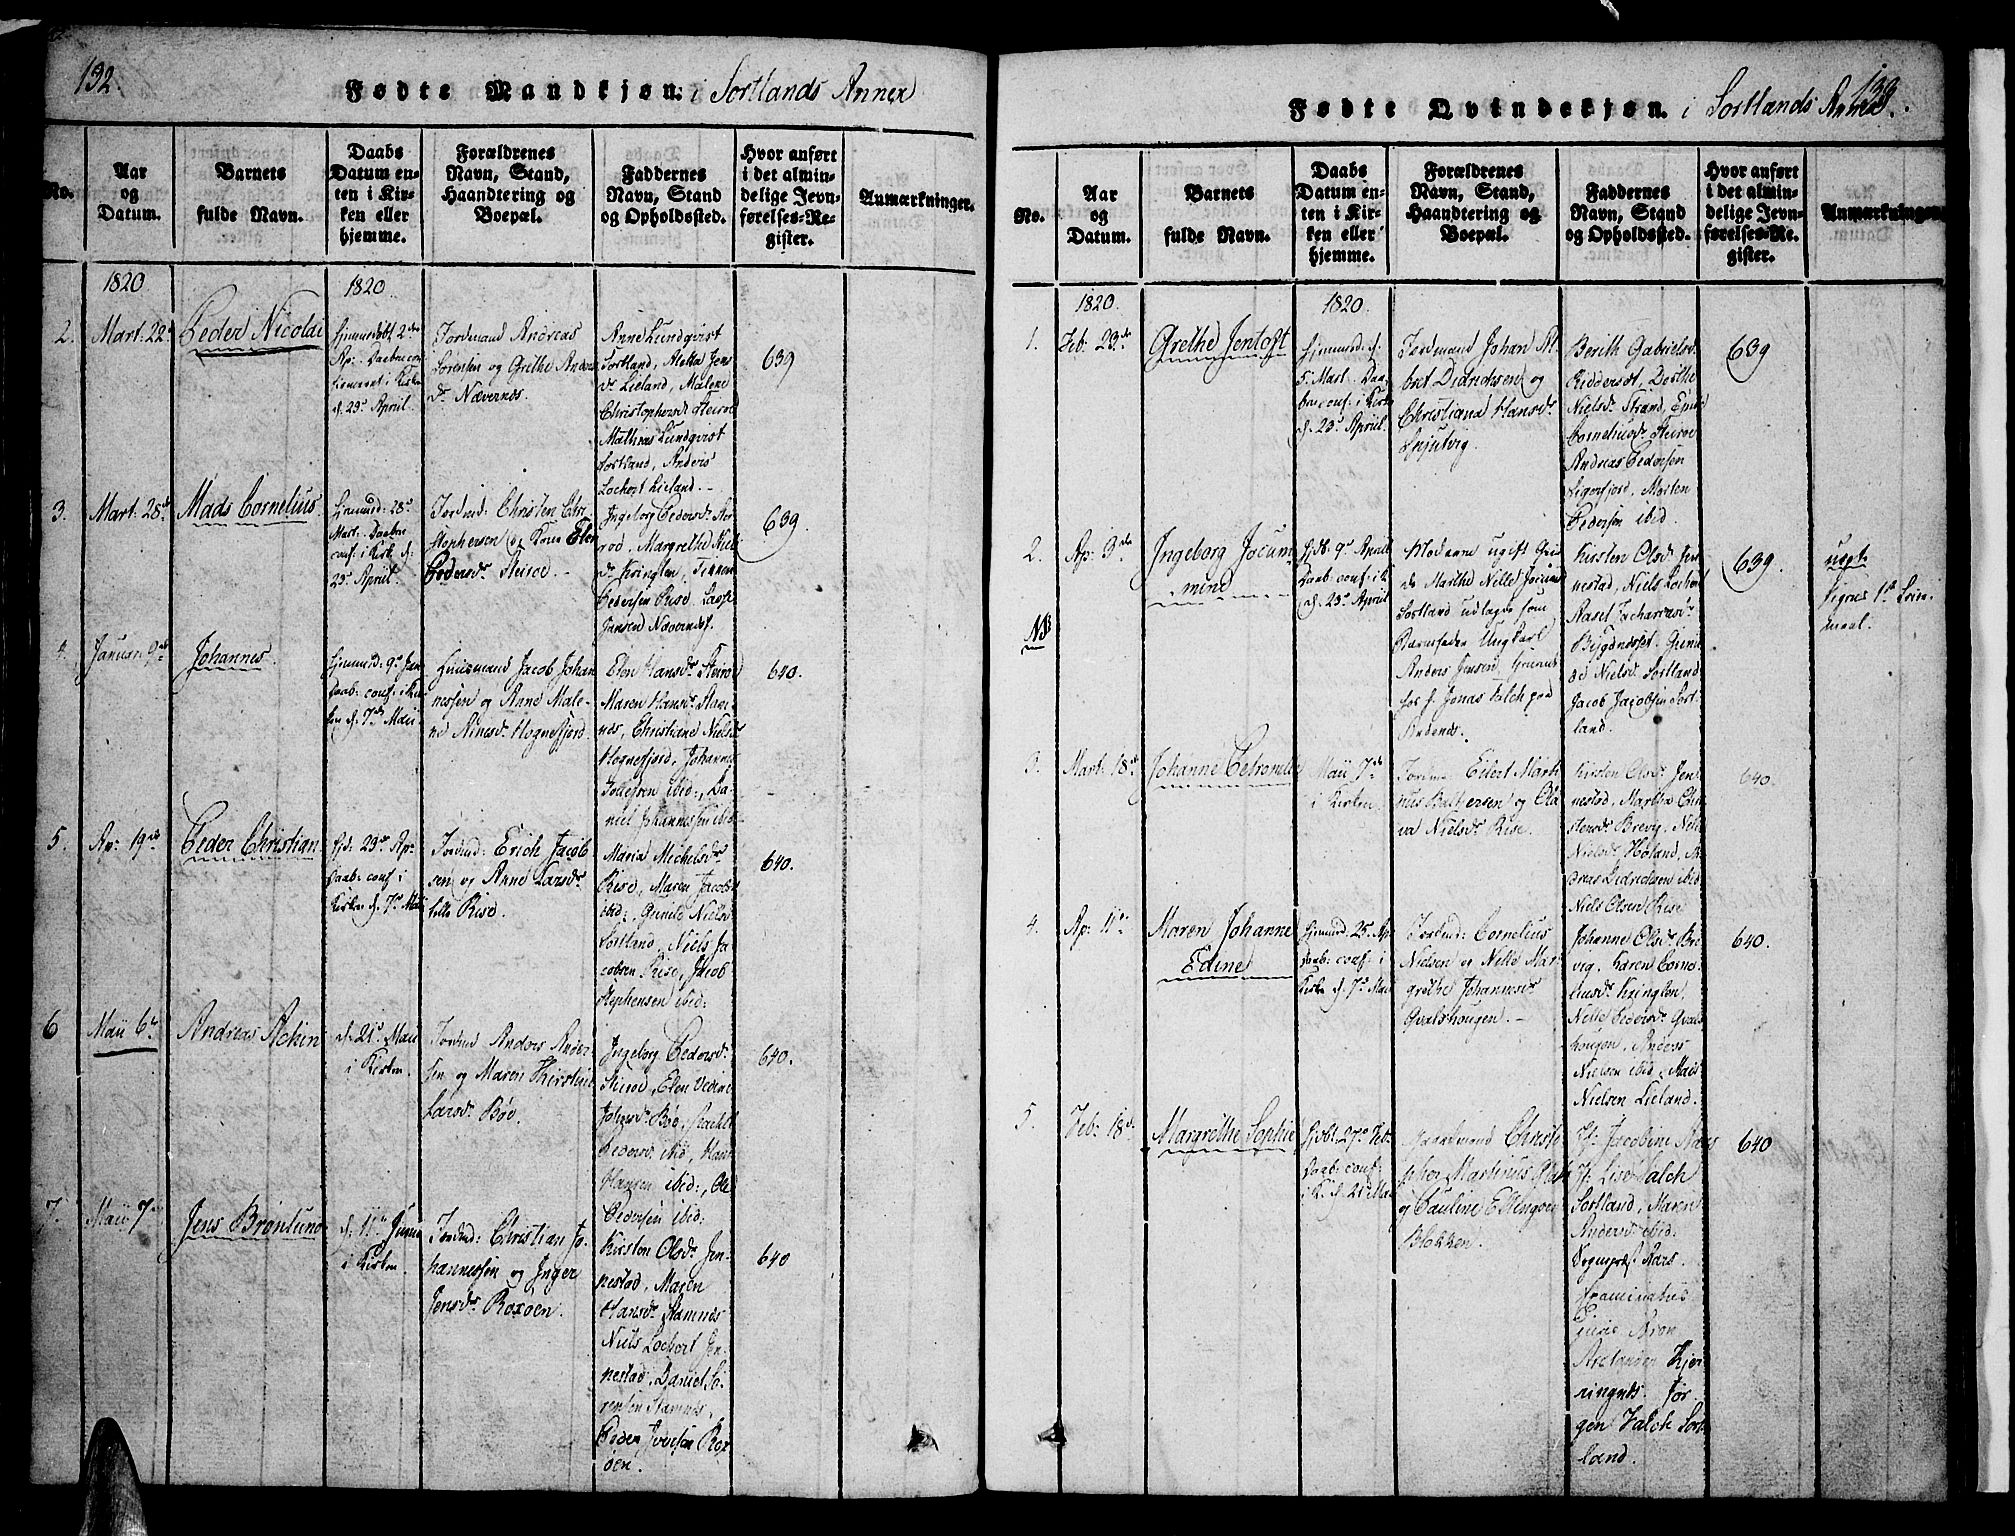 132.
Fødte Mandkjøn: i Sortlands Annex
No.
Aar
og
Datum.
Barnets
fulde Navn.
Daabs
Datum en-
ten i Kir-
ken eller
hjemme.
Forældrenes
Navn, Stand,
Haandtering og
Boepæl.
Faddernes
Navn, Stand
og Opholdssted.
Hvor anført
i det almin-
delige Jevn-
førelses-Re-
gister.
Anmærkninger.
1820
1820
2.
Mart: 22
Peder Nicolai
Ap: Daaben con
firmeret i Kirken
d. 23de April.
Jordmand Andreas
Sørensen og Grethe Anders
dr Nævernes
Anne Lundqvist
Sortland, Aletha Jens
dr Lieland, Malene
Christophersdr Steiroe
Mathias Lundqvist
Sortland, Anders
Lochert Lieland. -
639
3.
Mart: 28de
Mads Cornelius
Hjemmed: 28de
Mart. Daaben
conf: i Kirk d.
23de April.
Jordmd: Christen Chri
stophersen og Kone Elen
Pedersdr Steiroe -
Ingeborg Pedersdr Stei
roe, Margrethe Niels
dr Kringlen,
Pedersen Rise
Jansen Nævernes.
639
4.
Januar: 9de
Johannes
Hjemmd: 9de Jan
Daab: conf: i Kir
ken d. 7de Maii
Huusmand Jacob Johan
nessen og Anne Male-
ne Arnesdr Hognefjord
Elen Hansdr Steiroe
Maren Hansdr Stam
nes, Christiane Nielsdr
Hognefjord, Johannes
Tollefsen ibid:, Da-
niel Johannessen ibid.
640.
5.
Ap: 19de
Peder Christian
Hjd: 23de Ap:
Daab: conf: i
Kirken d. 7de Maii
Jordmd: Erich Jacob
sen og Anne Larsdr
Rise.
Maria Michelsdr
Rise, Maren Jacobsdr
ibid:, Gunild Nielsdr
Sortland, Niels Ja
cobsen Rise, Jacob
Stephensen ibid:
640.
6
Maii 6te
Andreas Achin
d. 21de Maii
i Kirken
Jordmd Anders Ander-
sen og Maren Kirstine
Larsdr Bøe
Ingeborg Pedersdr
Steiroe, Elen Vedine
Johnsdr Bøe, Rachel
Pedersdr ibid, Hans
Hansen ibid:, Ole
Pedersen ibid:
640.
7.
Maii 7de
Jens Brønlund
d. 11te Junii
i Kirken.
Jordmd: Christian Jo-
hannessen og Inger
Jensdr Roxøen.
Kirsten Olsdr Jen-
nestad, Maren
Hansdr Stamnes
Niels Lochert Jen-
nestad, Daniel Sø-
rensen Stamnes,
Peder Iversen Rox
øen.
640
133.
Fødte Qvindekjøn. i Sortlands Annex.
No.
Aar
og
Datum.
Barnets
fulde Navn.
Daabs
Datum en-
ten i Kir-
ken eller
hjemme.
Forældrenes
Navn, Stand,
Haandtering og
Boepæl.
Faddernes
Navn, Stand
og Opholdssted.
Hvor anført
i det almin-
delige Jevn-
førelses-Re-
gister.
Anmærkninger.
1820.
1820.
1.
Feb: 23de
Grethe Jentoft
Hjemmd: d.
5 Mart. Daa-
ben conf: i Kirk
d. 23de April
Jordmand Johan Al
bret Didrichsen og
Christiana Hansdr
Berith Gabrielsdr
Dorthe
Nielsdr Strand,
Corneliusdr Steiroe
Andreas Pedersen
Sigerfjord, Morten
Pedersen ibid.
639
2.
NB
Ap: 3de
Ingeborg Jocum
mine
Hjdbt. 9de April
Daab: conf: i K
d. 23de April
Moderen ugift Qvin
de Marthe Nille Jocums
Sortland udlagde som
Barnefader Ungkarl
Anders Jensen
hos H. Jonas Falch paa
Andenes.
Kirsten Olsdr Jen
nestad, Niels Lochert
Rasel Zachariasdr
Bygdnesset, Gunil
de Nielsdr Sortland
Jacob Jacobsen Sort-
land.
639.
uægt
Pigens 1ste Leier
maal.
3.
Mart: 18de
Johanne Petronelle
Maii 7de
i Kirken
Jordmd Eilert Marti
nus Baltzersen og Ola
va Nielsdr Rise.
Kirsten Olsdr Jen-
nestad, Martha Chri-
stensdr Brevig, Nille
Nielsdr Holand, An
dreas Didrichsen ibid
Niels Olsen Rise
640.
4.
Ap: 11te
Maren Johanne
Edine
Hjemmd: 25. Ap
Daab: conf: i
Kirken d. 7de Maii
Jordmd: Cornelius
Nielsen og Nille Mar-
grethe Johannesdr
Qvalshougen. -
Johanne Olsdr Bre
vig, Karen Corne-
liusdr Kringlen,
Nille Pedersdr Qvals
hougen, Anders
Nielsen ibid, Mads
Nielsen Lieland.
640.
5.
Feb: 18de
Margrethe Sophie
Hjdbt. 27de Feb.
Daab: conf:
i K. d. 21 Maii
Christo
pher Martinus
og Pauline Ellingsen
Blokken.
Fr. Jacobine Aars
Fr. Lise Falch
Sortland, Maren
Andersdr ibid.
Sognepræst Aars.
Examinatus
juris Bron
Kjer-
ringnes. Jør
gen Falch Sort
land.
640